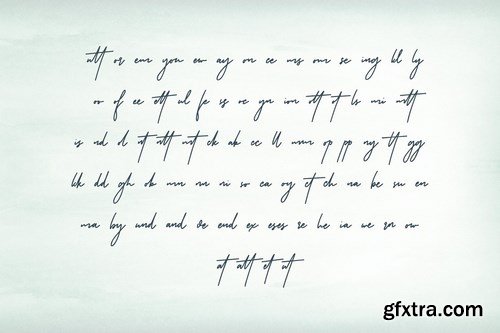 utt or em you ew ay on ce ms om se ing bl ly
ov of ee ett ul fe is ve yn ion dt ot ls mi mtt
is nd d st ntt not ck ab cc ll mm op pp ny tt gg
kk dd gh ob mn nn ni so ea oy et ch na be su en
ma by und and the end ex eses re he ia we rn ow
at att et ut
gfxtra.com